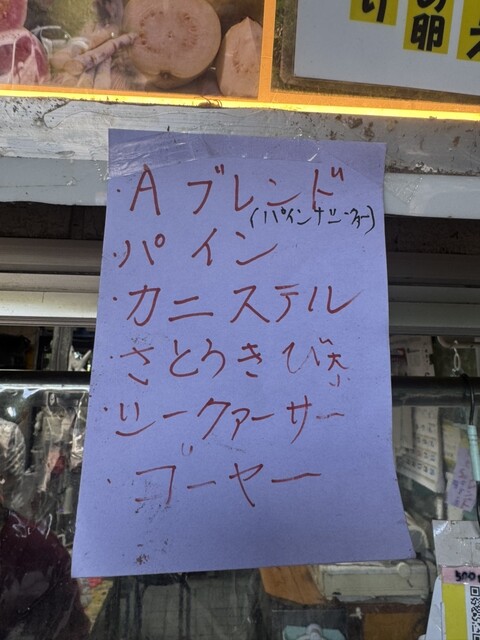 け
の卵
・A ブレンド
(パインナシークァー)
・パイン
・カニステル
・さとうきび
・シークァーサー
・ゴーヤー